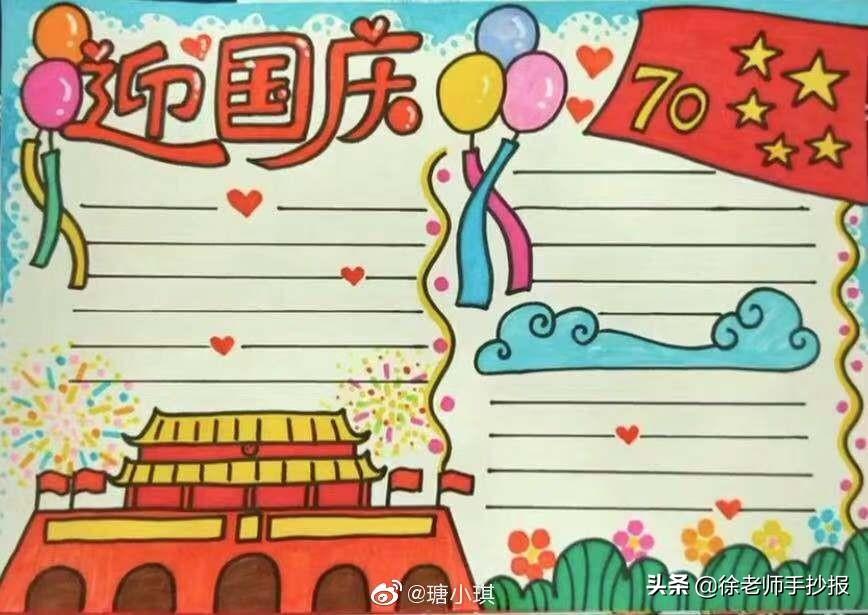 迎国庆
70
@瑭小琪
头条 @徐老师手抄报